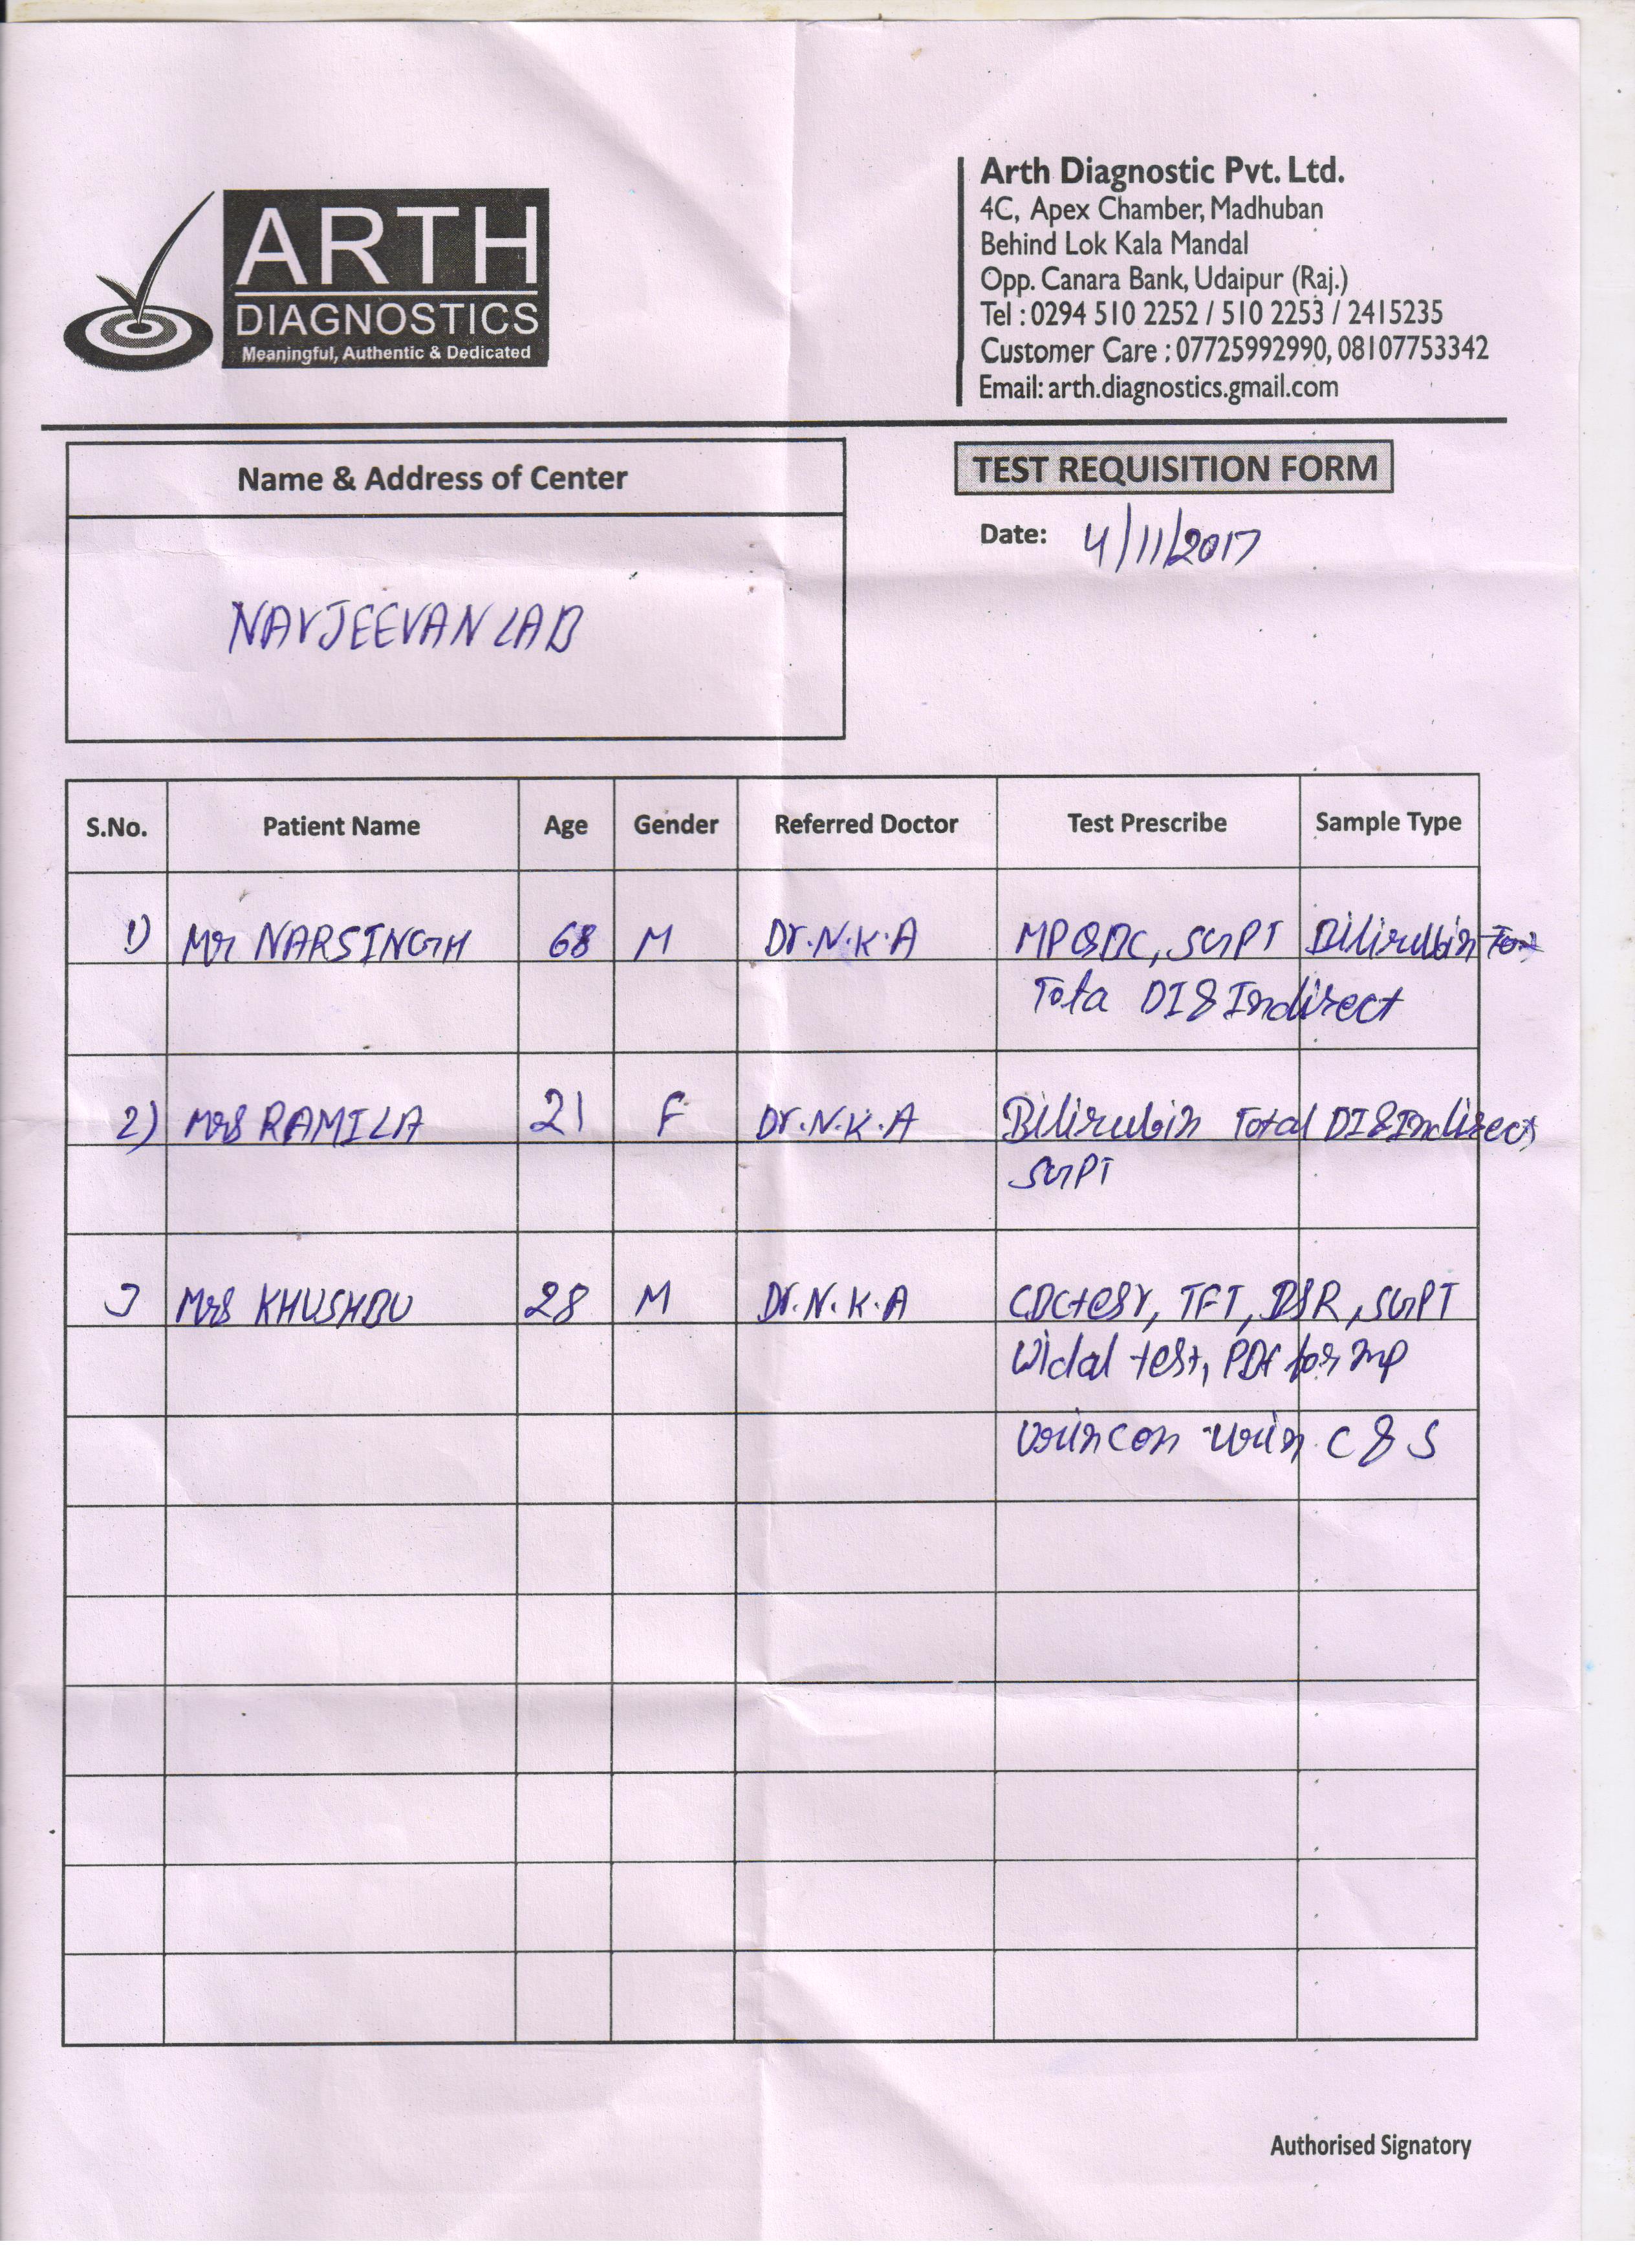 ARTH
DIAGNOSTICS
Meaningful, Authentic & Dedicated
Arth Diagnostic Pvt. Ltd.
4C, Apex Chamber, Madhuban
Behind Lok Kala Mandal
Opp. Canara Bank, Udaipur (Raj.)
Tel : 0294 510 2252 / 510 2253 / 2415235
Customer Care : 07725992990, 08107753342
Email: arth.diagnostics.gmail.com
Name & Address of Center
TEST REQUISITION FORM
Date: 4/11/2017
NAVJEEVAN LAB
S.No. Patient Name Age Gender Referred Doctor Test Prescribe Sample Type
1) Mr NARSINGH 68 M Dr.N.K.A SGPT Bilirubin
Tota DI & Indirect
2) Mrs RAMILA 21 F Dr.N.K.A Bilirubin Total DI & Indirect,
SGPT
3 Mrs KHUSHBU 28 M Dr.N.K.A TFT, SGPT
Widal test, for mp
urin C & S
Authorised Signatory